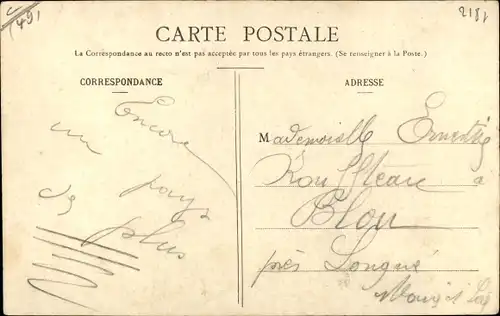 (491
2181
CARTE POSTALE
La Correspondance au recto n'est pas acceptée par tous les pays étrangers. (Se renseigner à la Poste.)
CORRESPONDANCE
Encore
un pays
de plus
ADRESSE
Mademoiselle Ernestine
à
Blou
près Longué